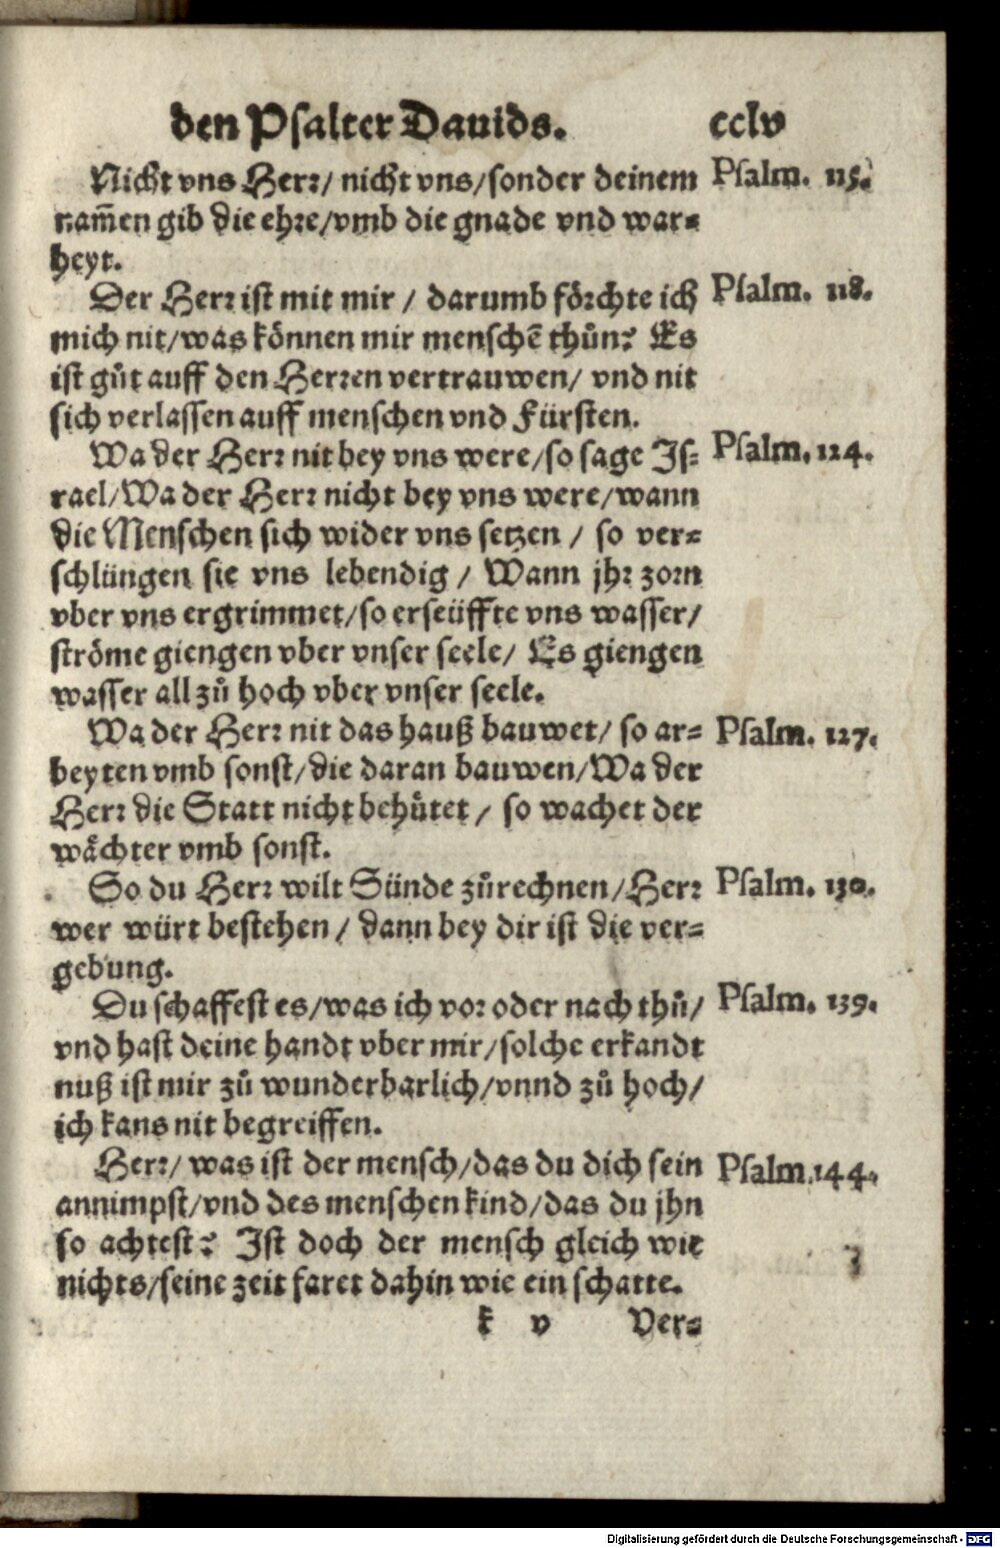 den Psalter Dauids. cclv
Nicht vns Herr/ nicht vns/sonder deinem Psalm. 115.
nam̄en gib die ehre/vmb die gnade vnd war-
heyt.
Der Herr ist mit mir / darumb förchte ich Psalm. 118.
mich nit/was können mir menschē thůn? Es
ist gůt auff den Herren vertrauwen/ vnd nit
sich verlassen auff menschen vnd Fürsten.
Wa der Herr nit bey vns were/so sage Js- Psalm. 124.
rael/Wa der Herr nicht bey vns were/wann
die Menschen sich wider vns setzen / so ver-
schlüngen sie vns lebendig / Wann jhr zorn
vber vns ergrimmet/so erseüffte vns wasser/
ströme giengen vber vnser seele/ Es giengen
wasser all zů hoch vber vnser seele.
Wa der Herr nit das hauß bauwet/ so ar- Psalm. 127.
beyten vmb sonst/die daran bauwen/Wa der
Herr die Statt nicht behůtet / so wachet der
wächter vmb sonst.
So du Herr wilt Sünde zůrechnen/Herr Psalm. 130.
wer würt bestehen / dann bey dir ist die ver-
gebung.
Du schaffest es/was ich vor oder nach thů/ Psalm. 139.
vnd hast deine handt vber mir/solche erkandt
nuß ist mir zů wunderbarlich/vnnd zů hoch/
ich kans nit begreiffen.
Herr/ was ist der mensch/das du dich sein Psalm.144.
annimpst/vnd des menschen kind/das du jhn
so achtest? Jst doch der mensch gleich wie
nichts/seine zeit faret dahin wie ein schatte.
k v Ver-
Digitalisierung gefördert durch die Deutsche Forschungsgemeinschaft - DFG